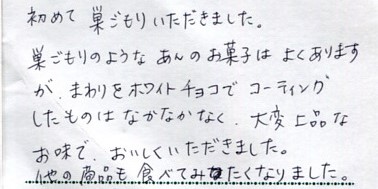 初めて 巣ごもりいただきました。
巣ごもりのような あんのお菓子は よくあります
が、まわりをホワイトチョコで コーティング
したものは なかなかなく、大変上品な
お味で、おいしくいただきました。
他の商品も 食べてみたくなりました。